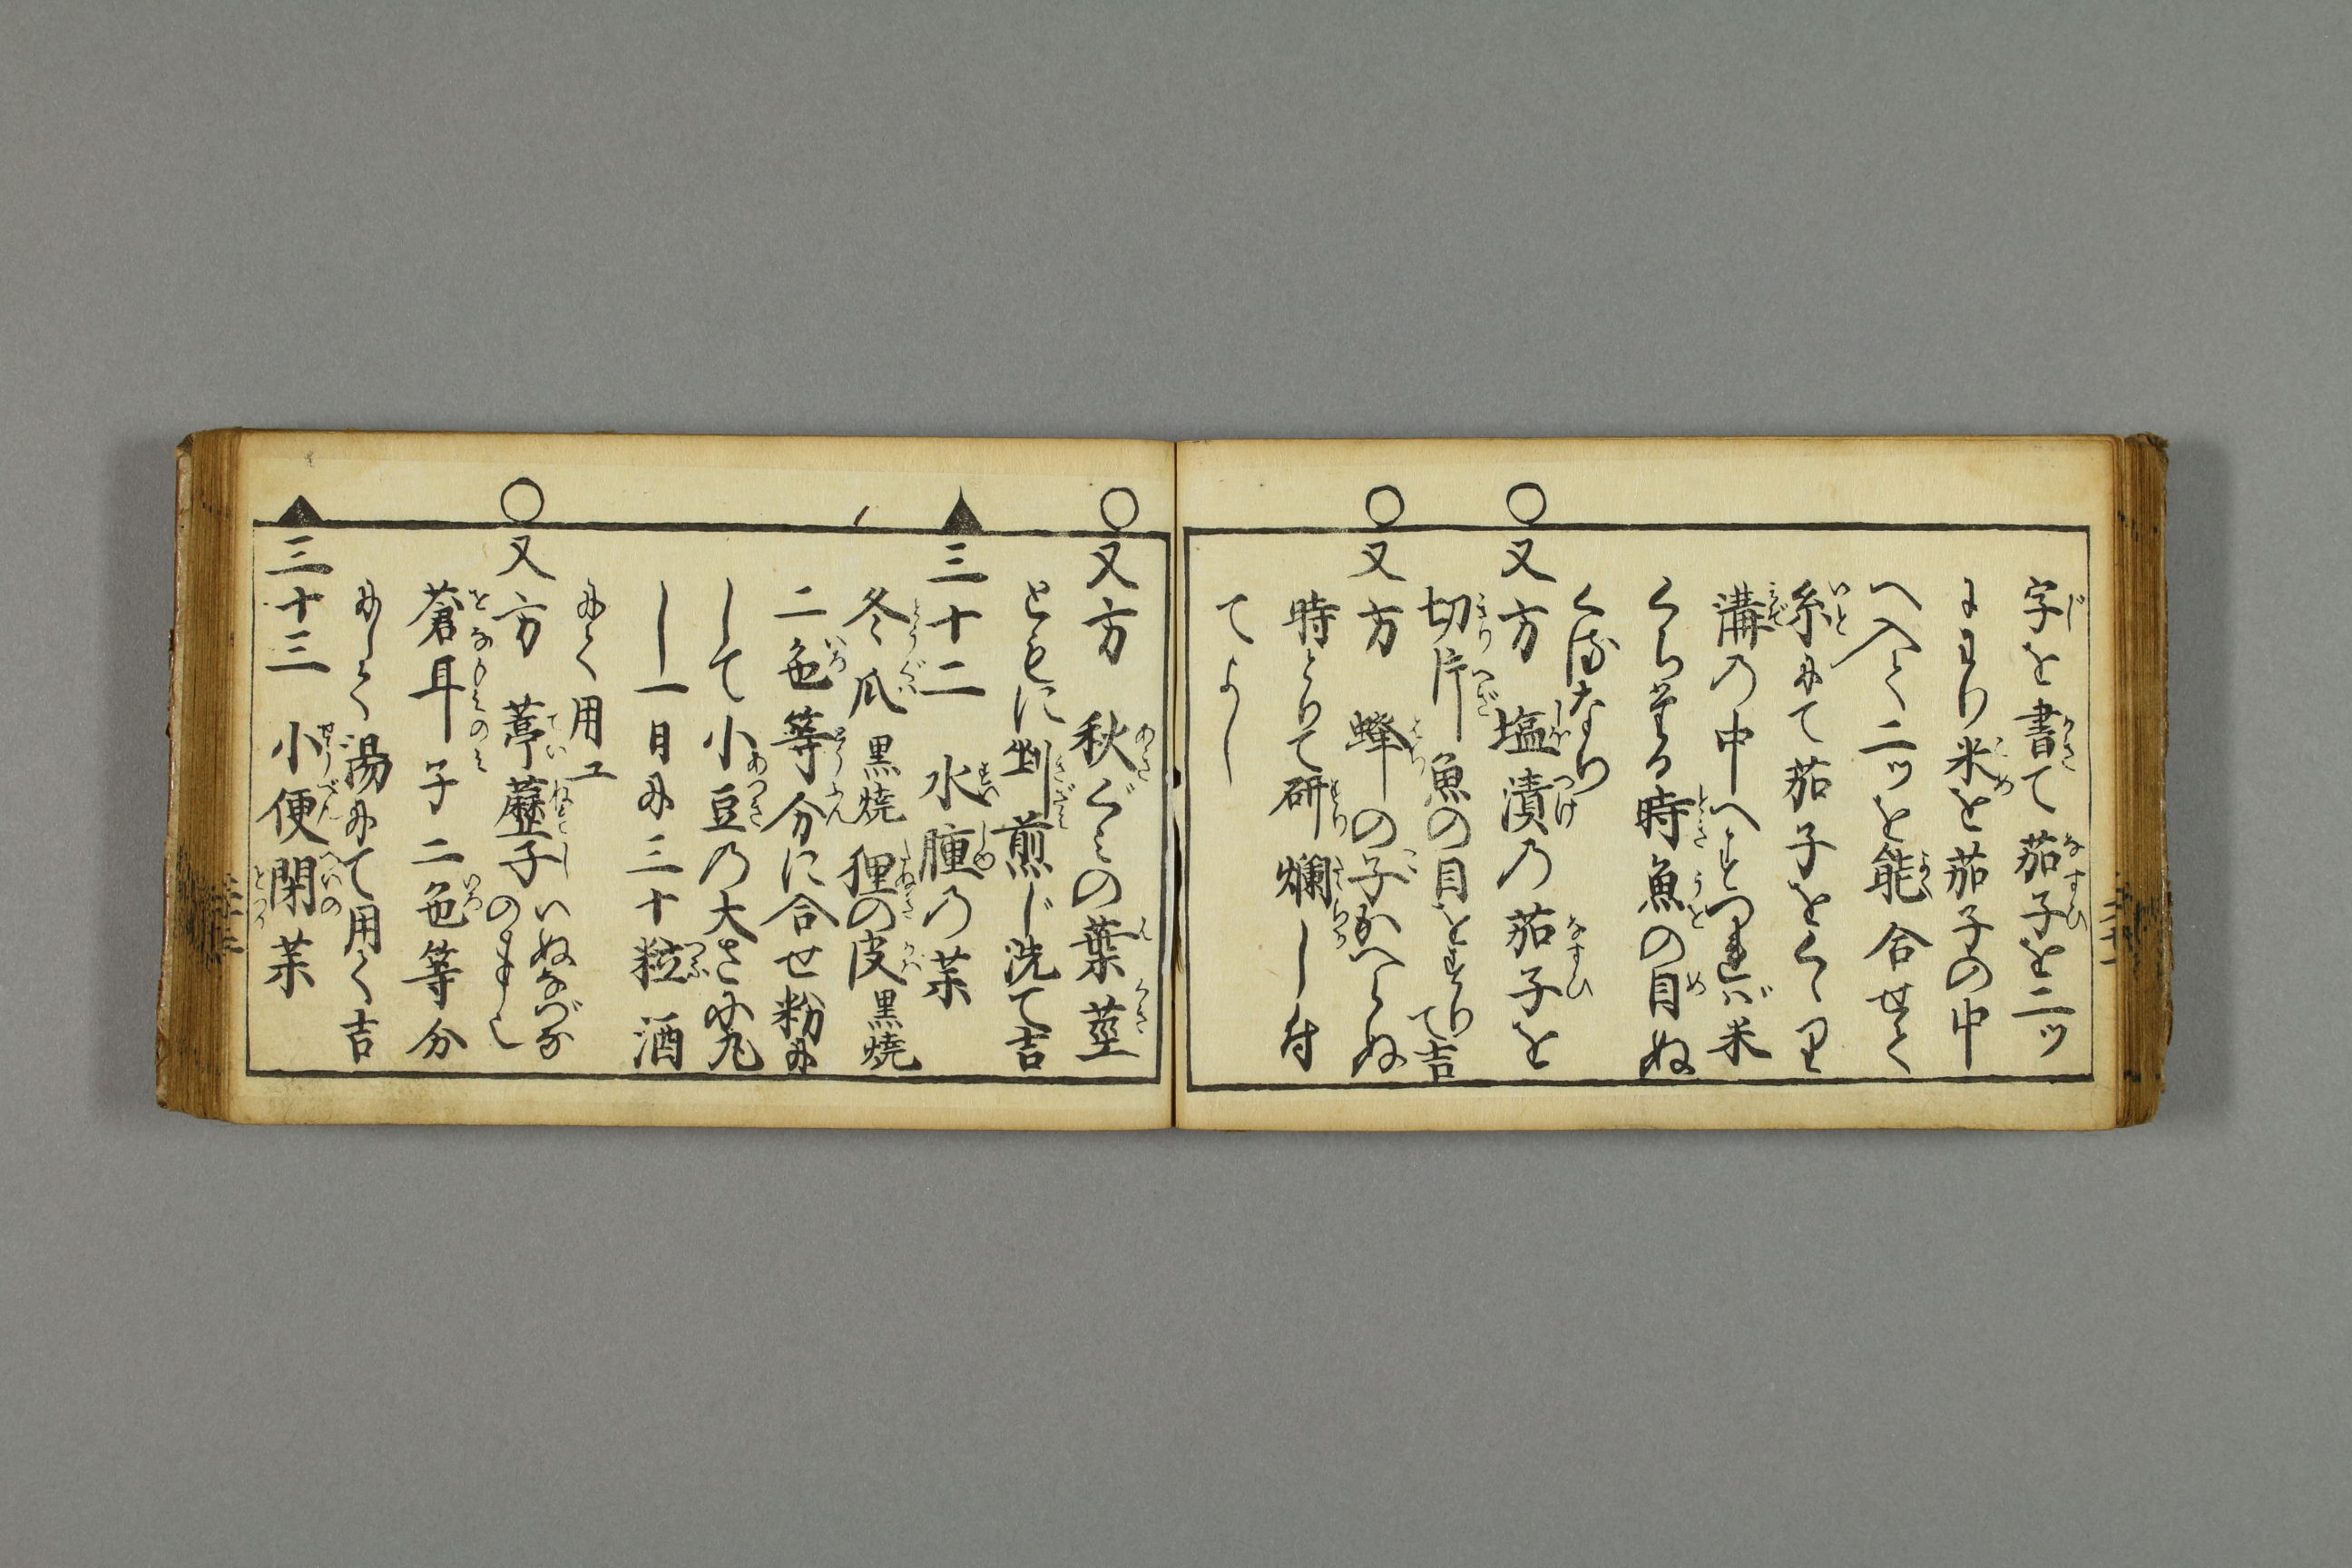 字を書て茄子を二ッ
にわり米を茄子の中
へ入て二ッを能合せて
糸にて茄子をくゝり
溝の中へすつれば米
くちする時魚の目ぬ
くるなり
○又方 塩漬の茄子を
切片魚の目をすりて吉
○又方 蜂の子かへらぬ
時とりて研爛し付
てよし
○又方 秋ぐみの葉茎
ともに剉煎じ洗て吉
▲三十二 水腫の薬
冬瓜黒焼狸の皮黒焼
二色等分に合せ粉に
して小豆の大さに丸
し一日に三十粒酒
にて用ユ
○又方 葶藶子いぬなづな
のみ也
蒼耳子二色等分
にして湯にて用て吉
▲三十三 小便閉薬